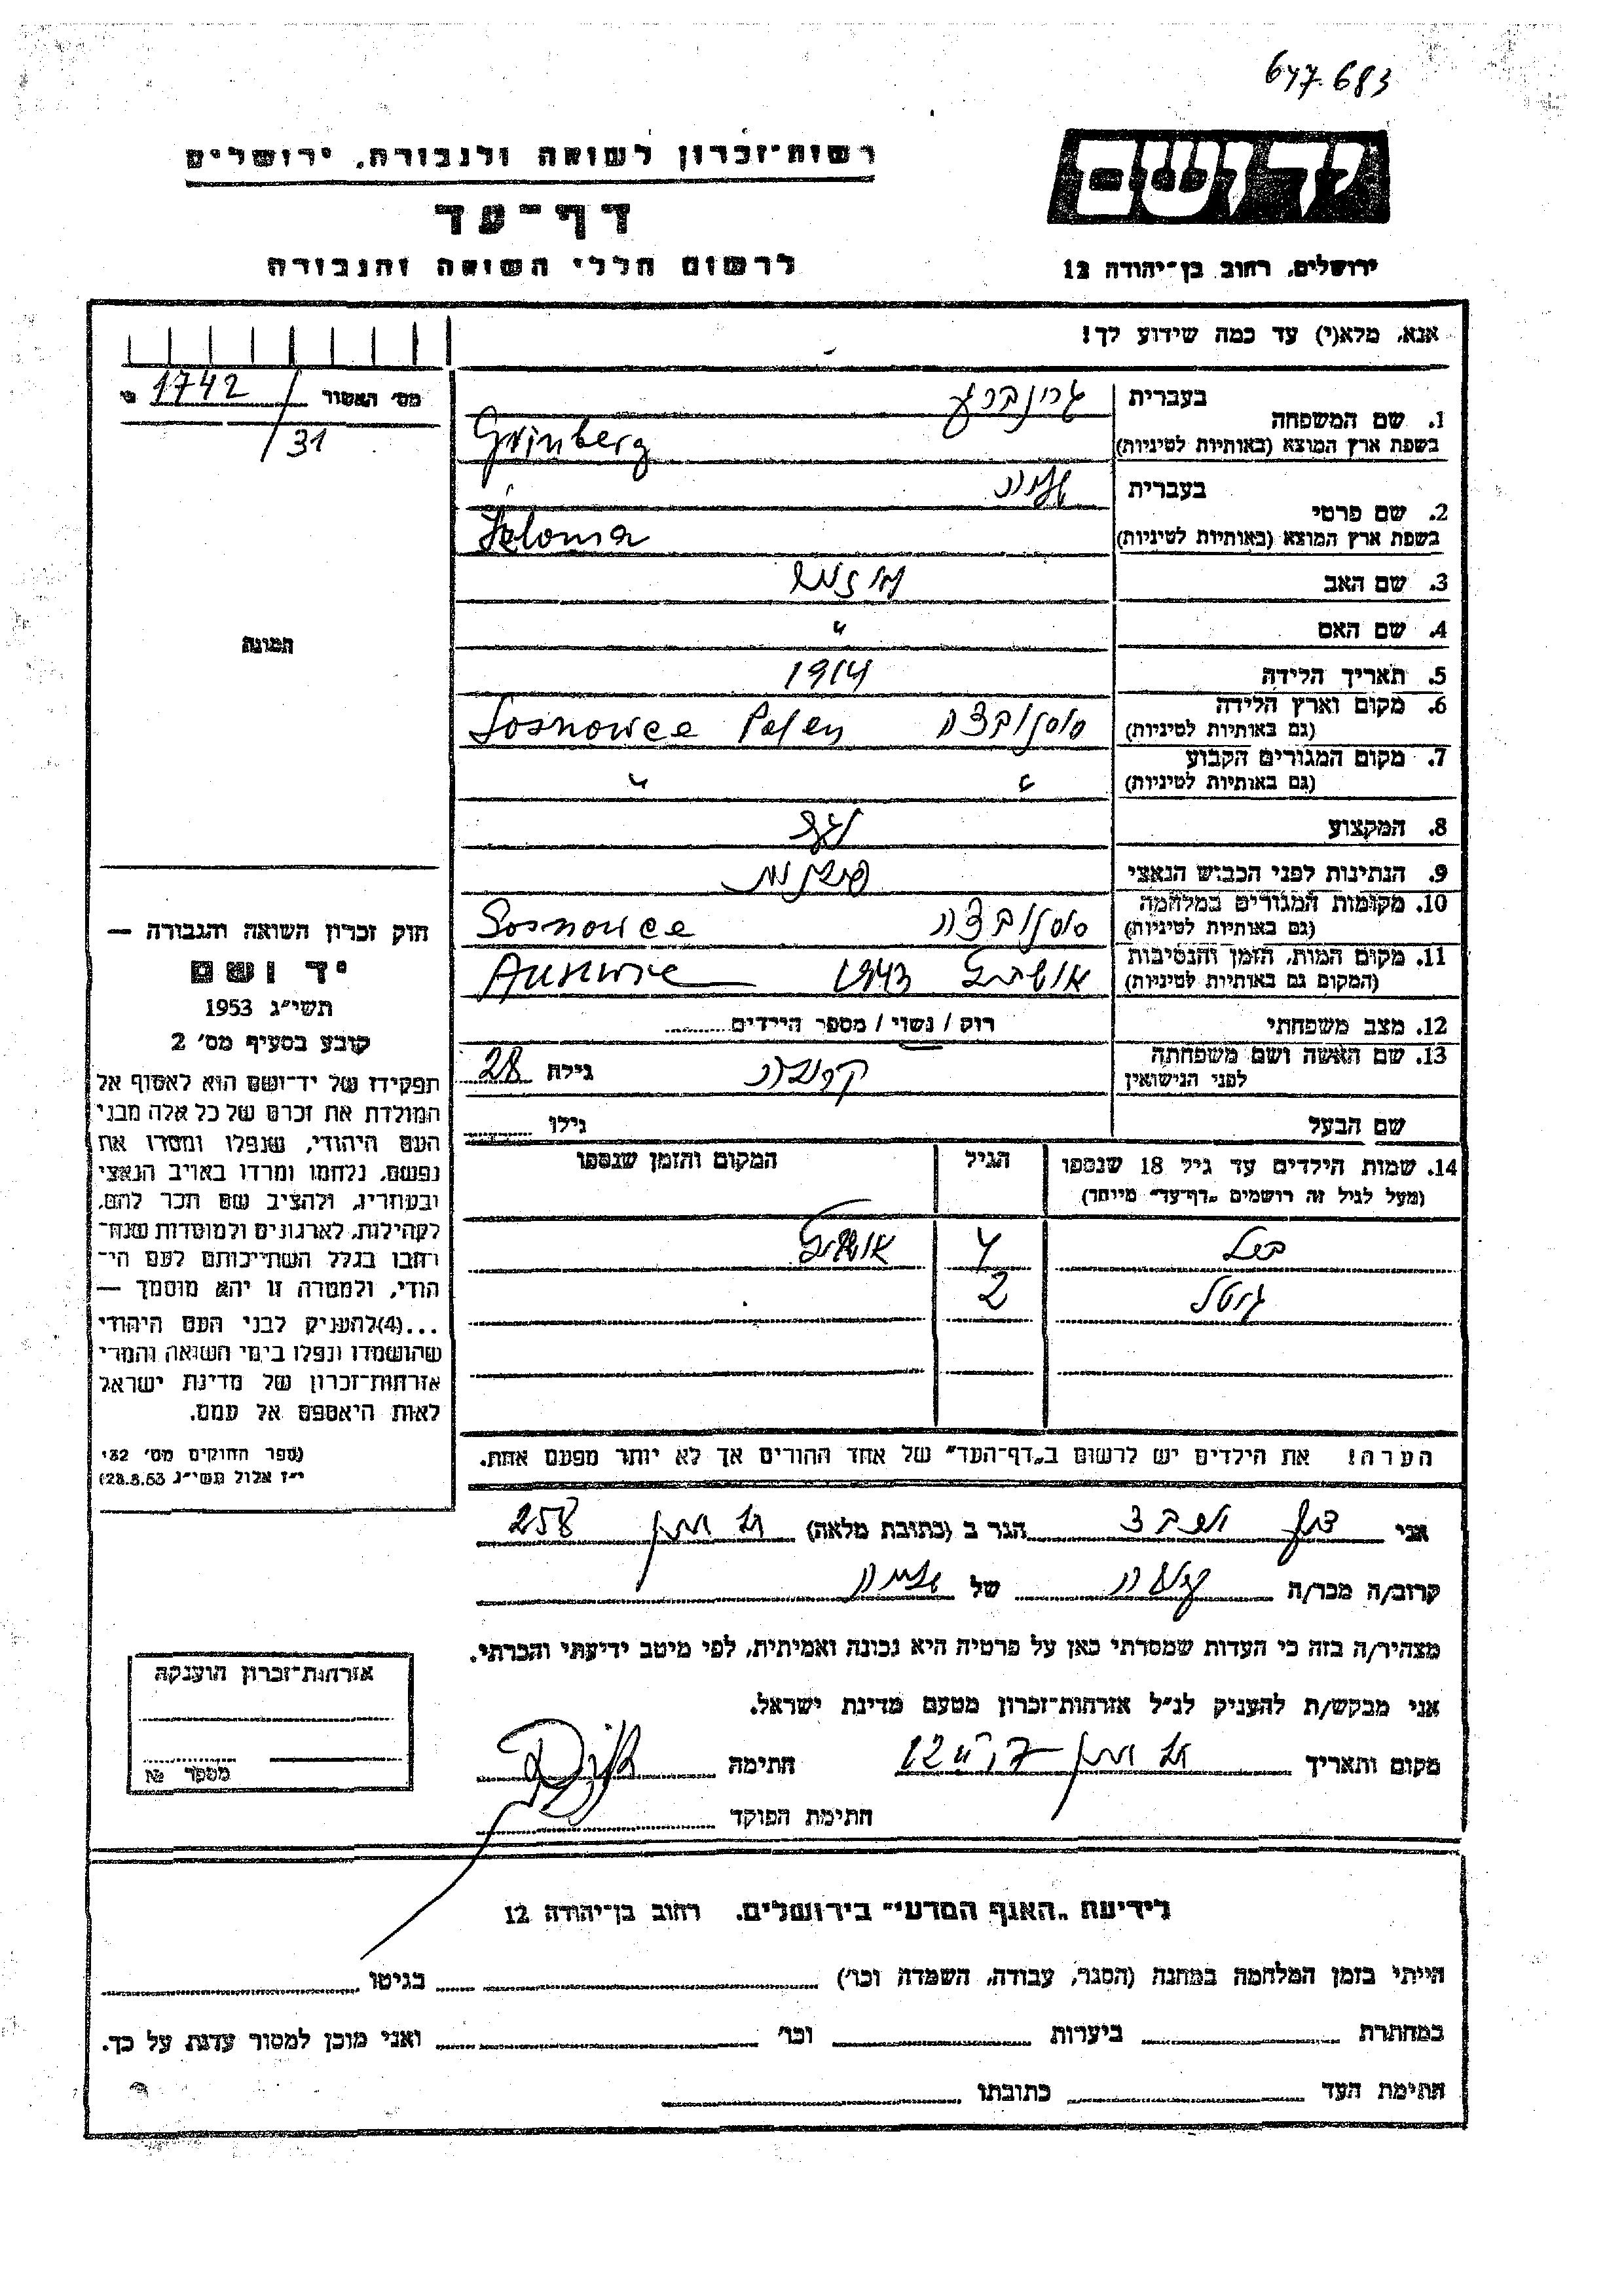 647.683
יד ושם
רשות־זכרון לשואה ולגבורה, ירושלים
דף־עד
לרשום חללי השואה והגבורה
ירושלים, רחוב בן־יהודה 12
אנא, מלא(י) עד כמה שידוע לך!
מס׳ האשור 1742
/31
1. שם המשפחה
בעברית גרינברג
בשפת ארץ המוצא (באותיות לטיניות) Grinberg
2. שם פרטי
בעברית שלמה
בשפת ארץ המוצא (באותיות לטיניות) Szloma
3. שם האב
4. שם האם "
5. תאריך הלידה 1914
6. מקום וארץ הלידה
(גם באותיות לטיניות) סוסנוביצה Sosnowce Polen
7. מקום המגורים הקבוע
(גם באותיות לטיניות) " "
8. המקצוע
9. הנתינות לפני הכבוש הנאצי
10. מקומות המגורים במלחמה
(גם באותיות לטיניות) סוסנוביצה Sosnowce
11. מקום המות, הזמן והנסיבות
(המקום גם באותיות לטיניות) אושויץ 1943
12. מצב משפחתי רווק / נשוי / מספר הילדים
13. שם האשה ושם משפחתה
לפני הנישואין גילה 28
שם הבעל גילו
14. שמות הילדים עד גיל 18 שנספו הגיל המקום והזמן שנספו
(מעל לגיל זה רושמים „דף־עד" מיוחד)
4 אושויץ
2
הערה! את הילדים יש לרשום ב„דף־העד" של אחד ההורים אך לא יותר מפעם אחת.
תמונה
חוק זכרון השואה והגבורה —
יד ושם
תשי״ג 1953
קובע בסעיף מס׳ 2
תפקידו של יד־ושם הוא לאסוף אל
המולדת את זכרם של כל אלה מבני
העם היהודי, שנפלו ומסרו את
נפשם, נלחמו ומרדו באויב הנאצי
ובעוזריו, ולהציב שם וזכר להם,
לקהילות, לארגונים ולמוסדות שנח־
רבו בגלל השתייכותם לעם הי־
הודי, ולמטרה זו יהא מוסמך —
...(4)להעניק לבני העם היהודי
שהושמדו ונפלו בימי השואה והמרי
אזרחות־זכרון של מדינת ישראל
לאות היאספם אל עמם.
(ספר החוקים מס׳ 132
י״ז אלול תשי״ג 28.8.53)
אני הגר ב (כתובת מלאה) 258
קרוב/ה מכר/ה של שלמה
מצהיר/ה בזה כי העדות שמסרתי כאן על פרטיה היא נכונה ואמיתית, לפי מיטב ידיעתי והכרתי.
אני מבקש/ת להעניק לנ״ל אזרחות־זכרון מטעם מדינת ישראל.
מקום ותאריך חתימה
חתימת הפוקד
אזרחות־זכרון הוענקה
מספר №
לידיעת „האגף המדעי" בירושלים. רחוב בן־יהודה 12
הייתי בזמן המלחמה במחנה (הסגר, עבודה, השמדה וכו׳) בגיטו
במחתרת ביערות וכו׳ ואני מוכן למסור עדות על כך.
חתימת העד כתובתו